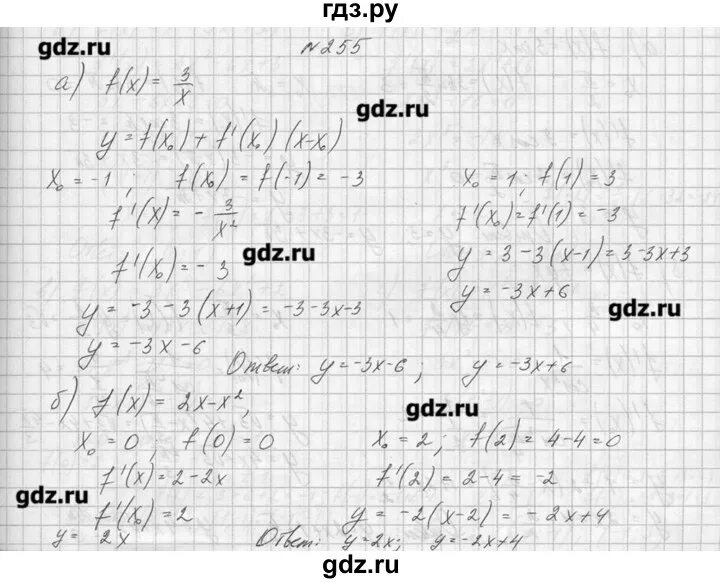 гдз.ру
gdz.ru
№255
а) f(x) = 3/x
gdz.ru
y = f(x₀) + f'(x₀)(x-x₀)
x₀ = -1; f(x₀) = f(-1) = -3
f'(x) = - 3/x²
f'(x₀) = - 3
gdz.ru
y = -3 -3(x+1) = -3-3x-3
y = -3x -6
x₀ = 1; f(1) = 3
f'(x₀) = f'(1) = -3
y = 3 -3(x-1) = 3-3x+3
y = -3x+6
gdz.ru
Ответ: y = -3x-6; y = -3x+6
б) f(x) = 2x-x²,
gdz.ru
x₀ = 0; f(0) = 0
f'(x) = 2-2x
gdz.ru
f'(x₀) = 2
y = 2x
x₀ = 2; f(2) = 4-4=0
f'(2) = 2-4 = -2
y = -2(x-2) = -2x+4
Ответ: y=2x; y=-2x+4
gdz.ru